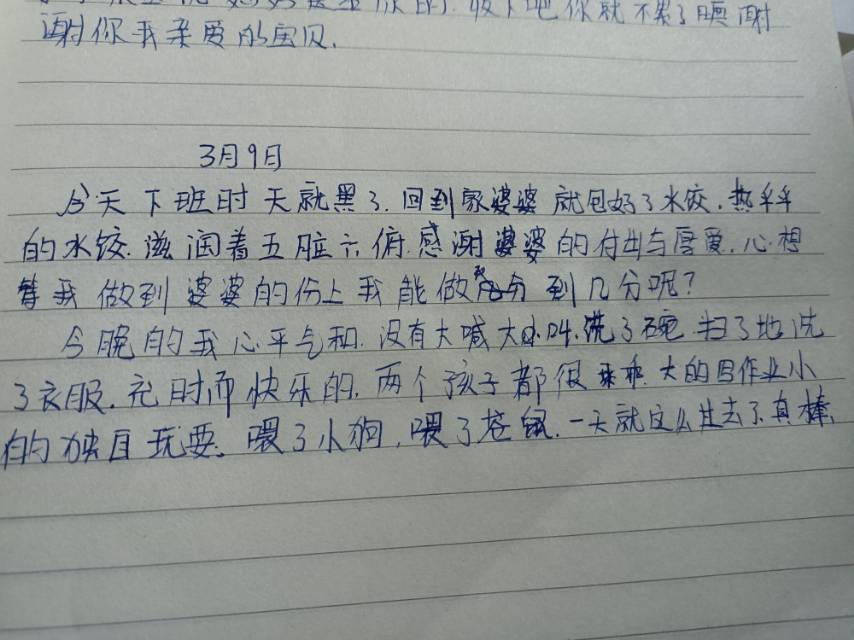 你的.收下吧你就不累了 谢
谢你我亲爱的宝贝.
3月9日
今天下班时天就黑了.回到家婆婆就包好了水饺.热乎乎
的水饺.滋润着五脏六俯.感谢婆婆的付出与厚爱.心想
等我做到婆婆的份上我能做到几分呢?
今晚的我心平气和.没有大喊大叫.洗了碗扫了地洗
了衣服.充时而快乐的.两个孩子都很乖.大的写作业小
的独自玩耍.喂了小狗,喂了仓鼠.一天就这么过去了.真棒.